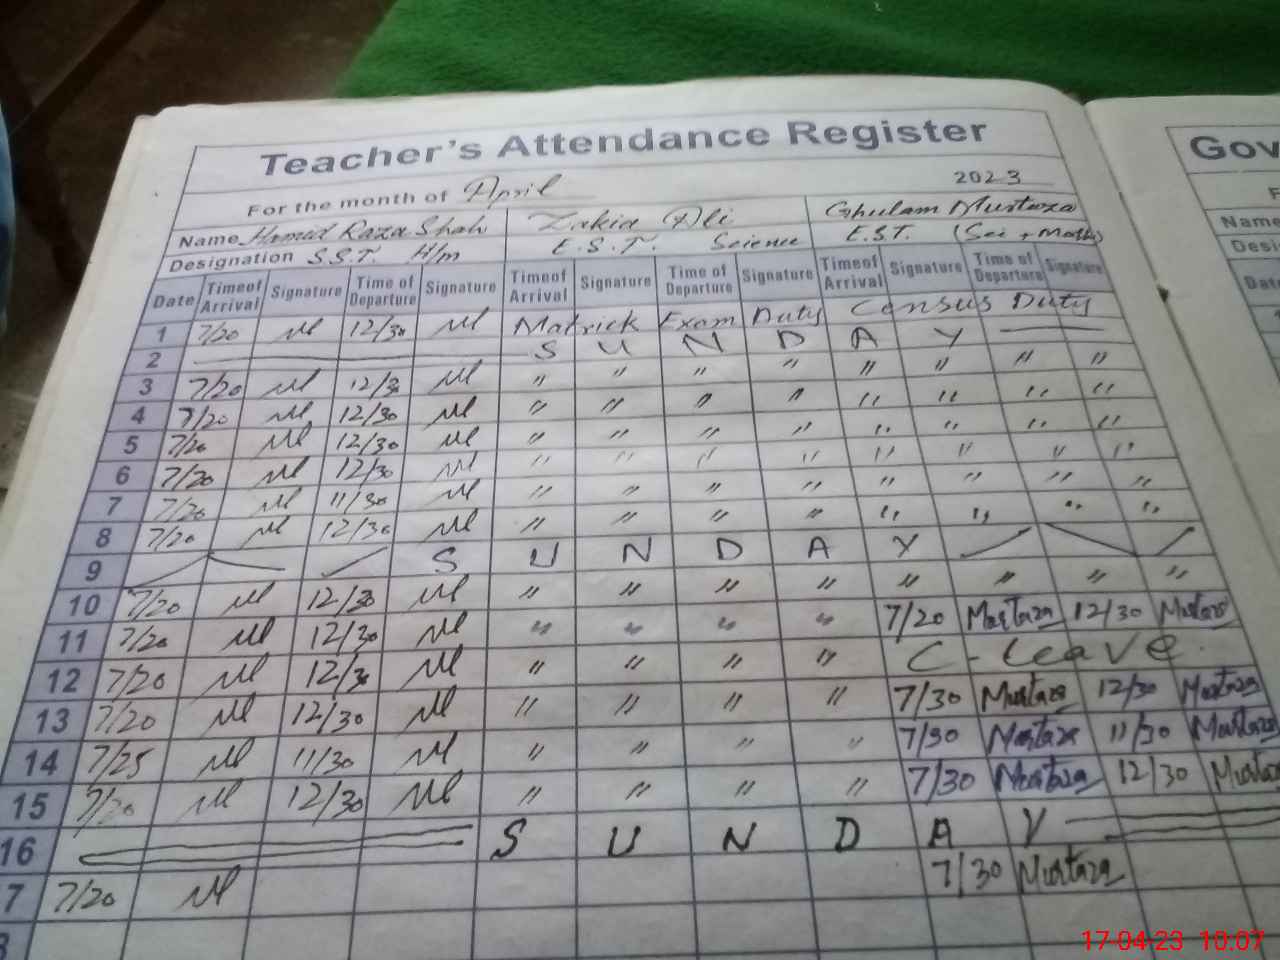 Teacher's Attendance Register
Gov
For the month of April 2023
F
Name Hamid Raza Shah Zakia Ali Ghulam Murtaza
Name
Designation S.S.T. H/m E.S.T. Science E.S.T. (Sci + Maths)
Desi
Date Time of Arrival Signature Time of Departure Signature Time of Arrival Signature Time of Departure Signature Time of Arrival Signature Time of Departure Signature
Date
1 7/20 12/30 Matrick Exam Duty Census Duty
2 S U N D A Y
3 7/20 12/30 " " " " " " " "
4 7/20 12/30 " " " " " " " "
5 7/20 12/30 " " " " " " " "
6 7/20 12/30 " " " " " " " "
7 7/20 11/30 " " " " " " " "
8 7/20 12/30 " " " " " " " "
9 S U N D A Y
10 7/20 12/30 " " " " " " " "
11 7/20 12/30 " " " " 7/20 Murtaza 12/30 Murtaza
12 7/20 12/30 " " " " C-Leave.
13 7/20 12/30 " " " " 7/30 Murtaza 12/30 Murtaza
14 7/25 11/30 " " " " 7/30 Murtaza 11/30 Murtaza
15 7/20 12/30 " " " " 7/30 Murtaza 12/30 Murtaza
16 S U N D A Y
7 7/20 7/30 Murtaza
17-04-23 10:07